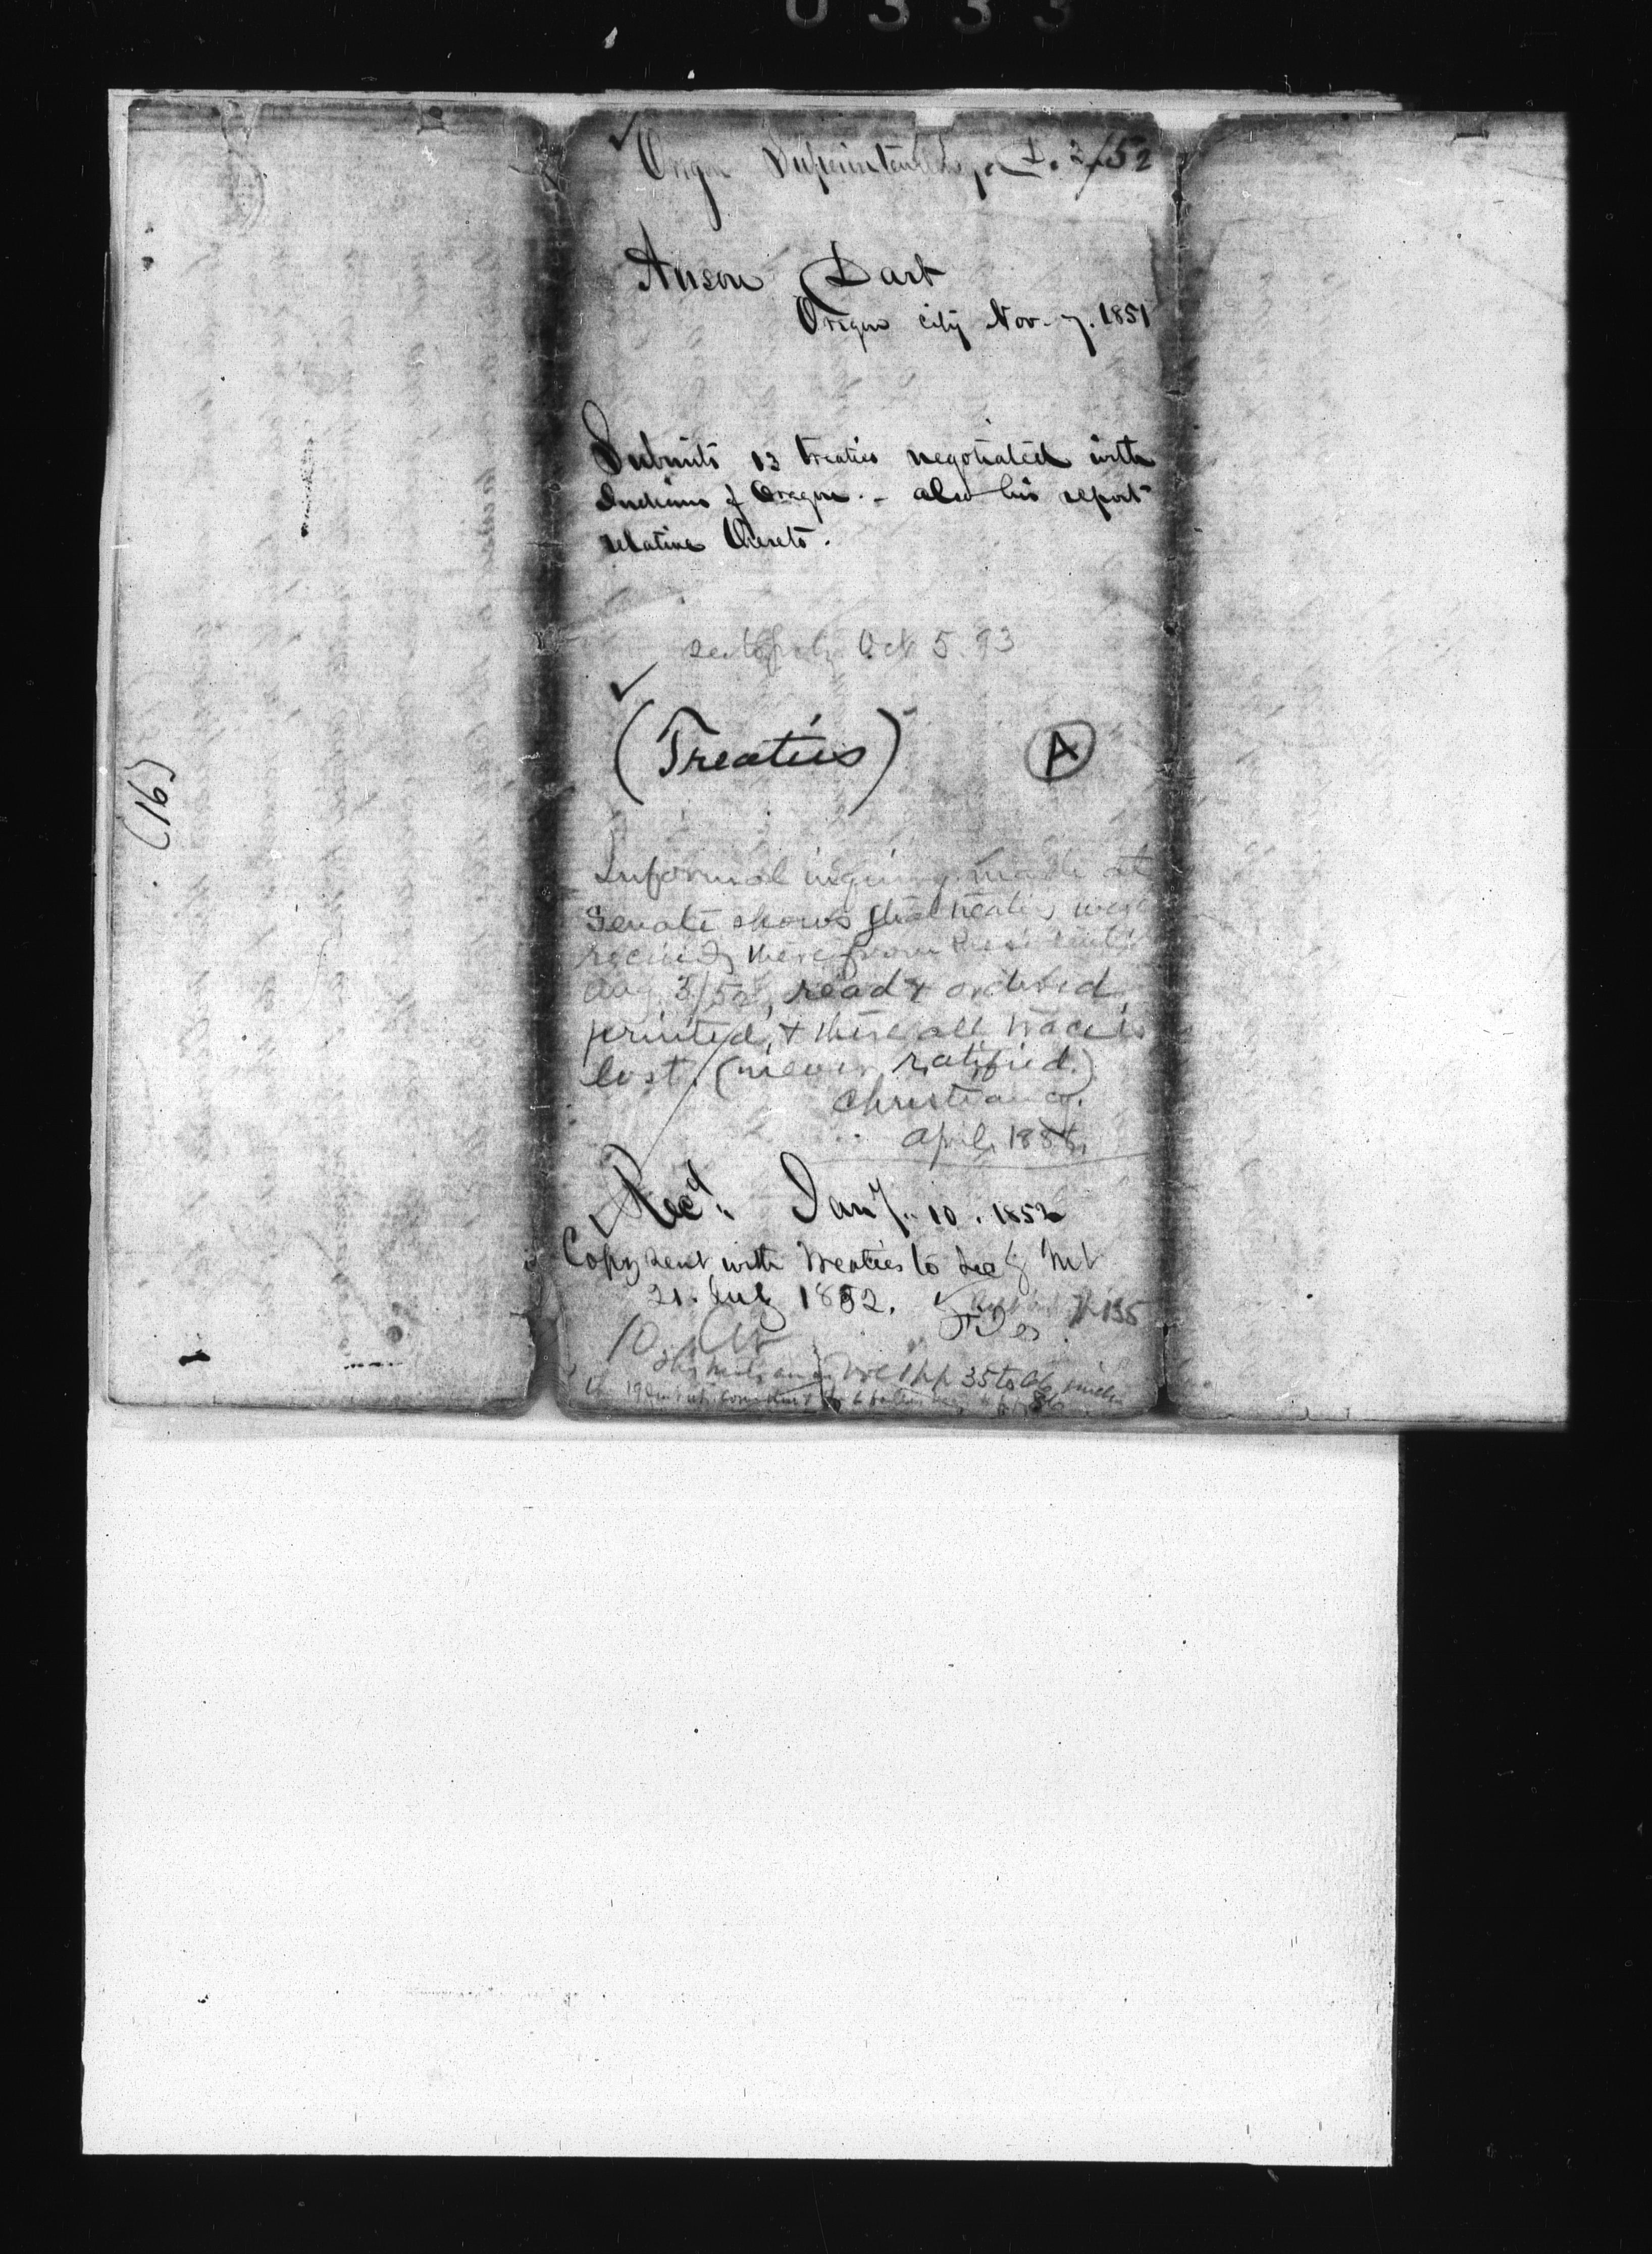 0333
Oregon Superintendency. D. 3/52
Anson Dart
Oregon city Nov. 7. 1851
Submits 13 treaties negotiated with
Indians of Oregon. - also his report
relative thereto.
Oct 5. 93
(Treaties) A
(16)
Informal inquiry made at
Senate shows that treaties were
received there from President
Aug 3/52, read & ordered
printed, & there all trace is
lost. (never ratified.)
Christiancy.
April, 1888.
Recd. Jany. 10. 1852
Copy sent with treaties to Secy Int
21. July 1852.
p 135
Vol 1 pp 35 to